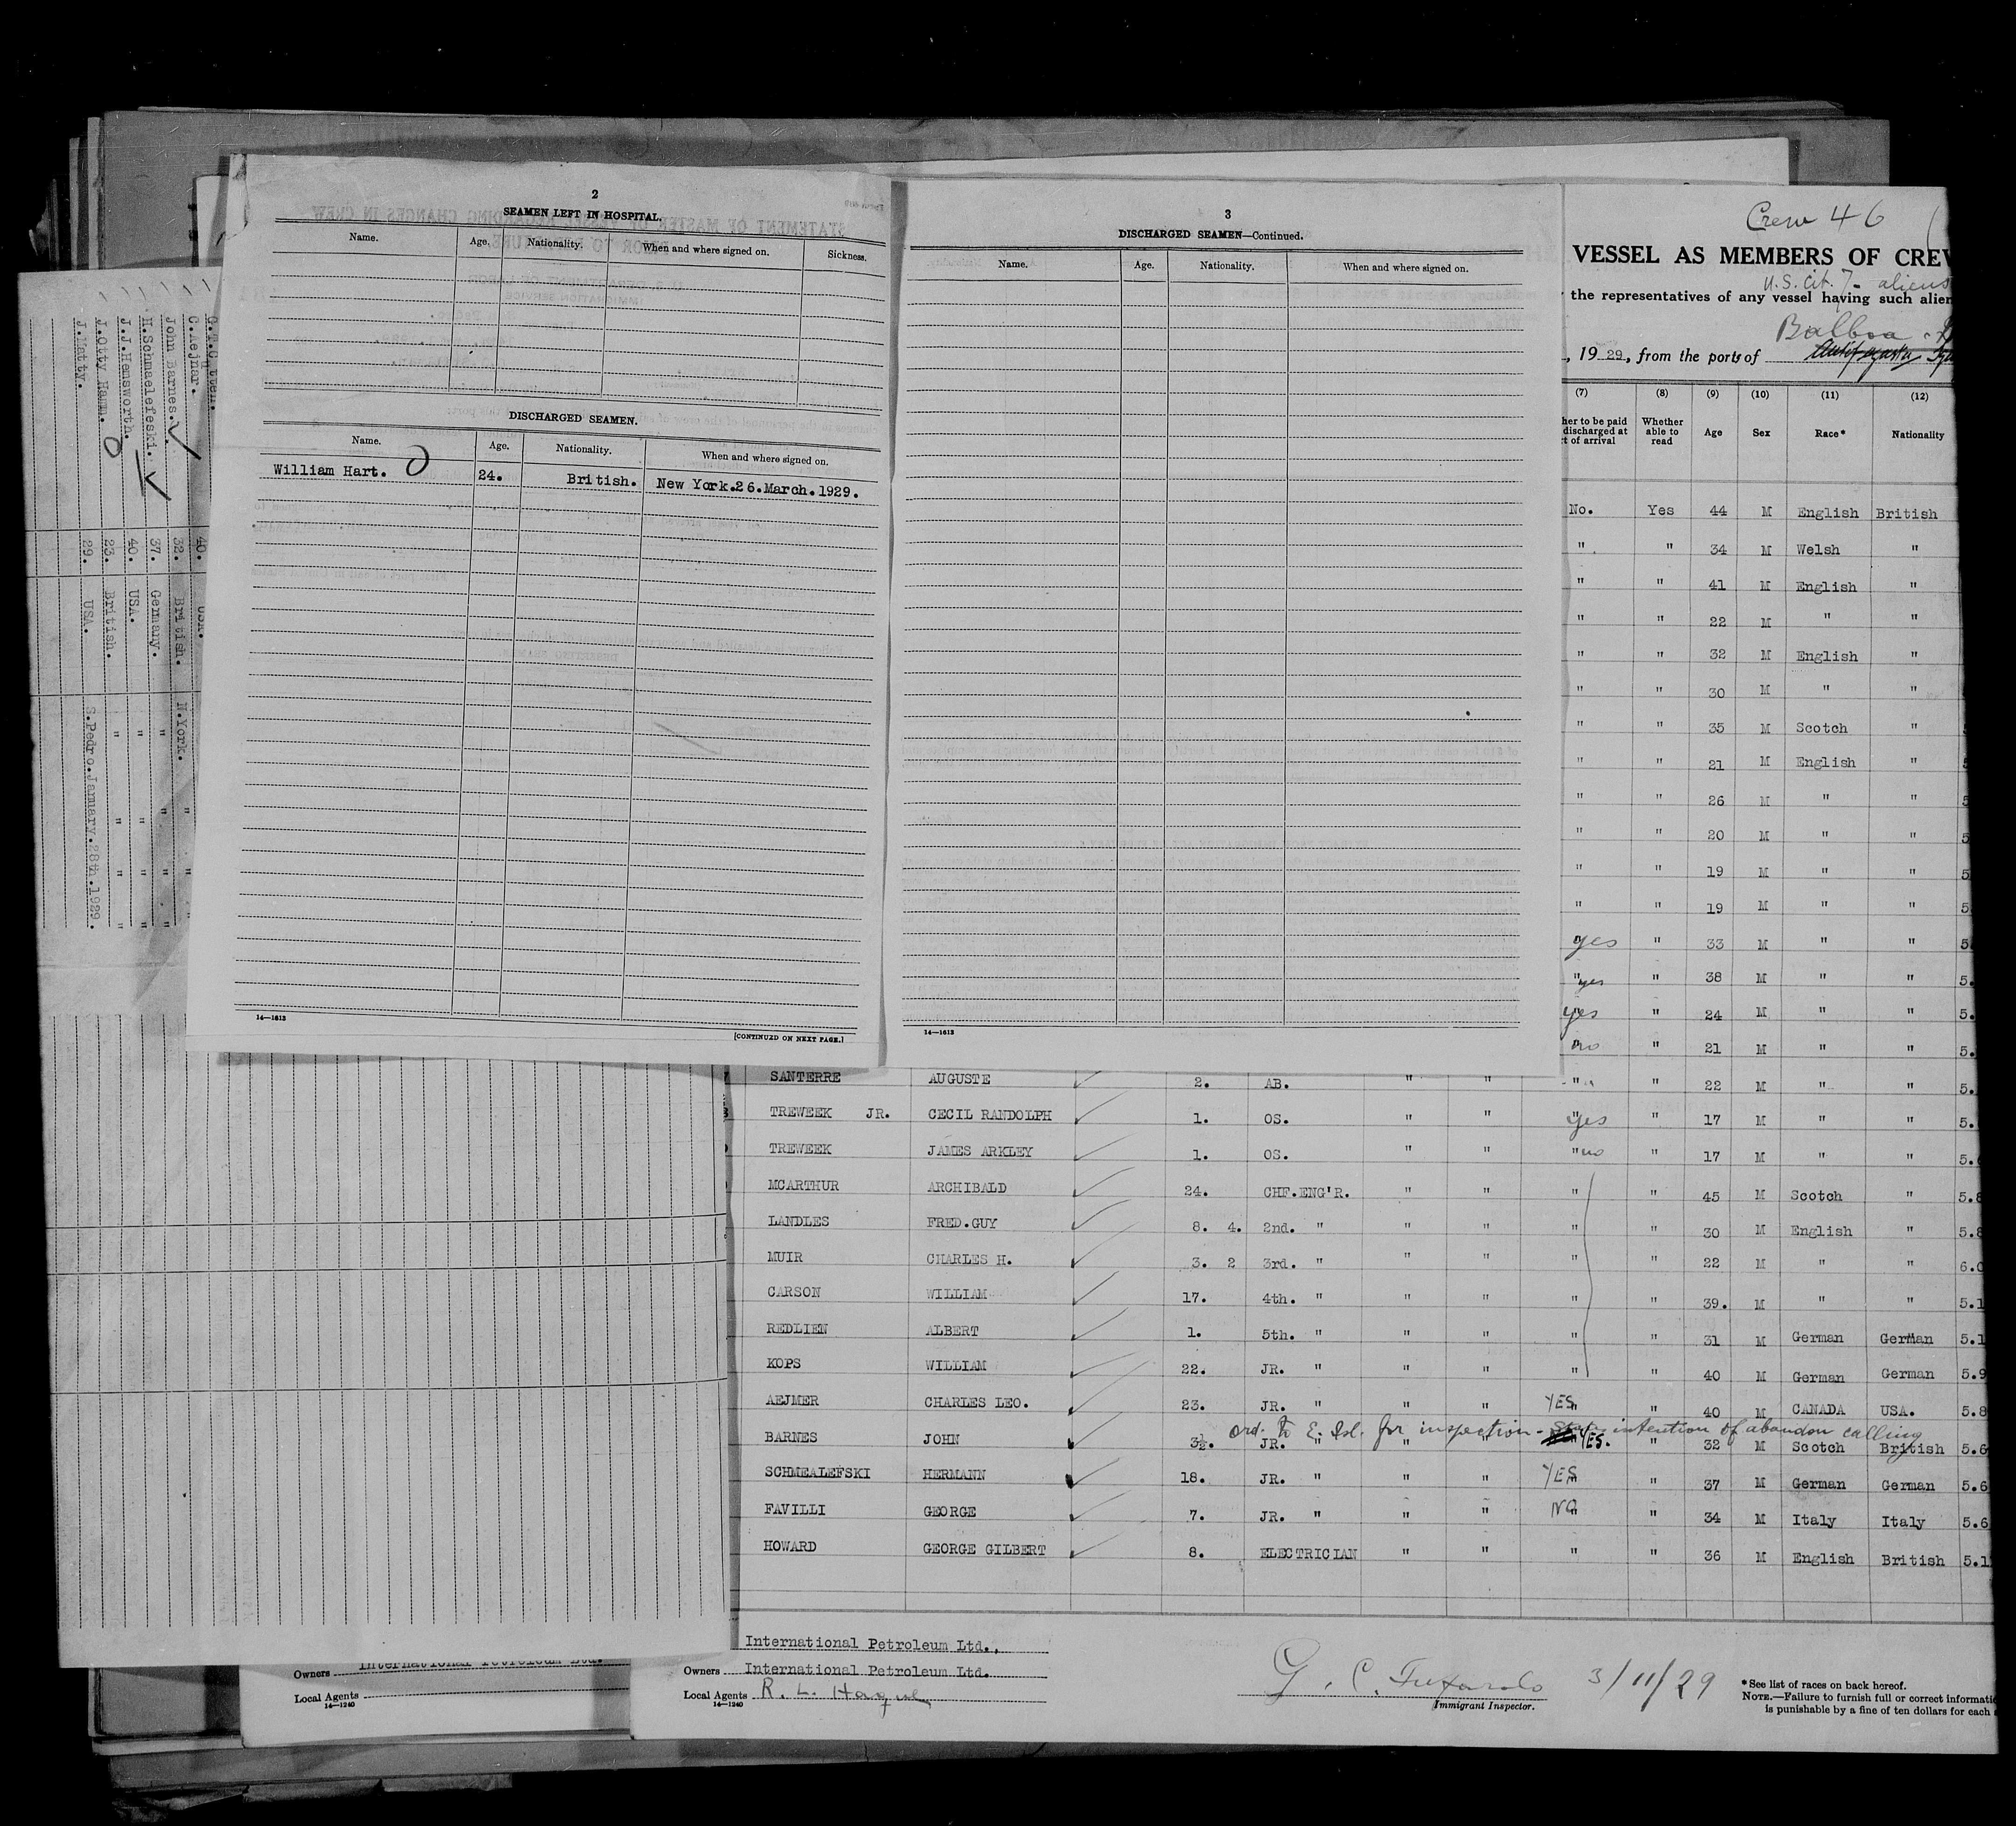 2
SEAMEN LEFT IN HOSPITAL.
Name. Age. Nationality. When and where signed on. Sickness.
DISCHARGED SEAMEN.
Name. Age. Nationality. When and where signed on.
William Hart. 24. British. New York.26.March.1929.
14—1613
[CONTINUED ON NEXT PAGE.]
3
DISCHARGED SEAMEN—Continued.
Name. Age. Nationality. When and where signed on.
14—1613
C.Aejnar.
John Barnes. 32. British. N.York. "
H.Schmaelefeski. 37. Germany. " " " "
J.J.Hensworth. 40. USA. " " " "
J.Otty Hann. 23. British. " " " "
J.Natty. 29. USA. S.Pedro.January.28th.1929.
Crew 46
VESSEL AS MEMBERS OF CREW
U.S. cit. 7- aliens
the representatives of any vessel having such alien
Balboa
, 1929, from the ports of
(7) (8) (9) (10) (11) (12)
her to be paid discharged at t of arrival Whether able to read Age Sex Race* Nationality
No. Yes 44 M English British
" " 34 M Welsh "
" " 41 M English "
" " 22 M " "
" " 32 M English "
" " 30 M " "
" " 35 M Scotch "
" " 21 M English "
" " 26 M " "
" " 20 M " "
" " 19 M " "
" " 19 M " "
yes " 33 M " "
" yes " 38 M " "
yes " 24 M " "
no " 21 M " "
SANTERRE AUGUSTE 2. AB. " " " " 22 M " "
TREWEEK JR. CECIL RANDOLPH 1. OS. " " " yes " 17 M " "
TREWEEK JAMES ARKLEY 1. OS. " " " no " 17 M " "
MCARTHUR ARCHIBALD 24. CHF.ENG'R. " " " " 45 M Scotch " 5.8
LANDLES FRED.GUY 8. 4. 2nd. " " " " " 30 M English " 5.8
MUIR CHARLES H. 3. 2 3rd. " " " " " 22 M " " 6.0
CARSON WILLIAM 17. 4th. " " " " " 39. M " " 5.1
REDLIEN ALBERT 1. 5th. " " " " " 31 M German German 5.1
KOPS WILLIAM 22. JR. " " " " " 40 M German German 5.9
AEJMER CHARLES LEO. 23. JR. " " " YES " 40 M CANADA USA. 5.8
ord. to E. Isl. for inspection - intention of abandon calling
BARNES JOHN 3½. JR. " " " YES. " 32 M Scotch British 5.6
SCHMEALEFSKI HERMANN 18. JR. " " " YES " 37 M German German 5.6
FAVILLI GEORGE 7. JR. " " " NO " 34 M Italy Italy 5.6
HOWARD GEORGE GILBERT 8. ELECTRICIAN " " " " 36 M English British 5.1
International Petroleum Ltd.,
Owners International Petroleum Ltd.
Local Agents R. L. Hague
14—1240
Owners International Petroleum Ltd.
Local Agents
14—1240
3/11/29
Immigrant Inspector.
*See list of races on back hereof.
NOTE.—Failure to furnish full or correct informati
is punishable by a fine of ten dollars for each